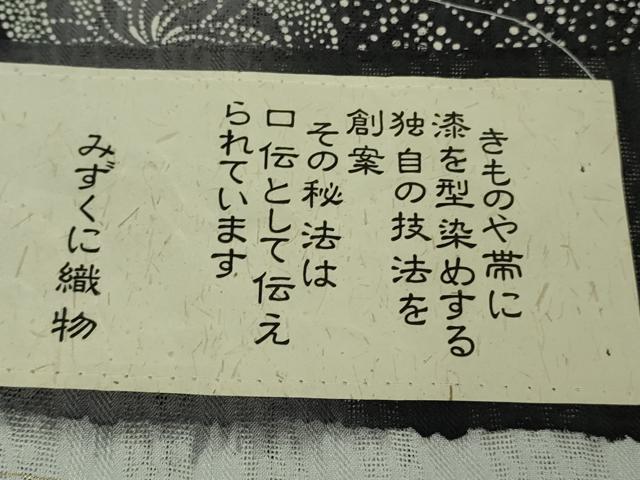 きものや帯に
漆を型染めする
独自の技法を
創案
その秘法は
口伝として伝え
られています
みずくに織物